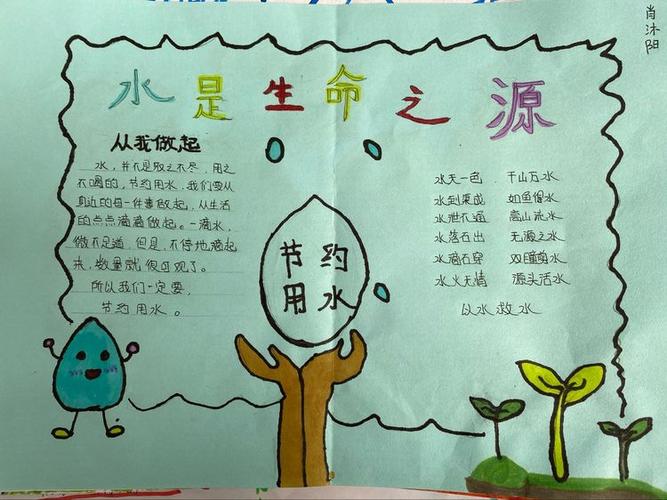 肖沐阳
水是生命之源
从我做起
水，并不是取之不尽，用之
不竭的，节约用水，我们要从
身边的每一件事做起，从生活
的点点滴滴做起。一滴水，
微不足道，但是，不停地滴起
来，数量就很可观了。
所以我们一定要，
节约用水。
节约
用水
水天一色 千山万水
水到渠成 如鱼得水
水泄不通 高山流水
水落石出 无源之水
水滴石穿 双瞳剪水
水火无情 源头活水
以水救水